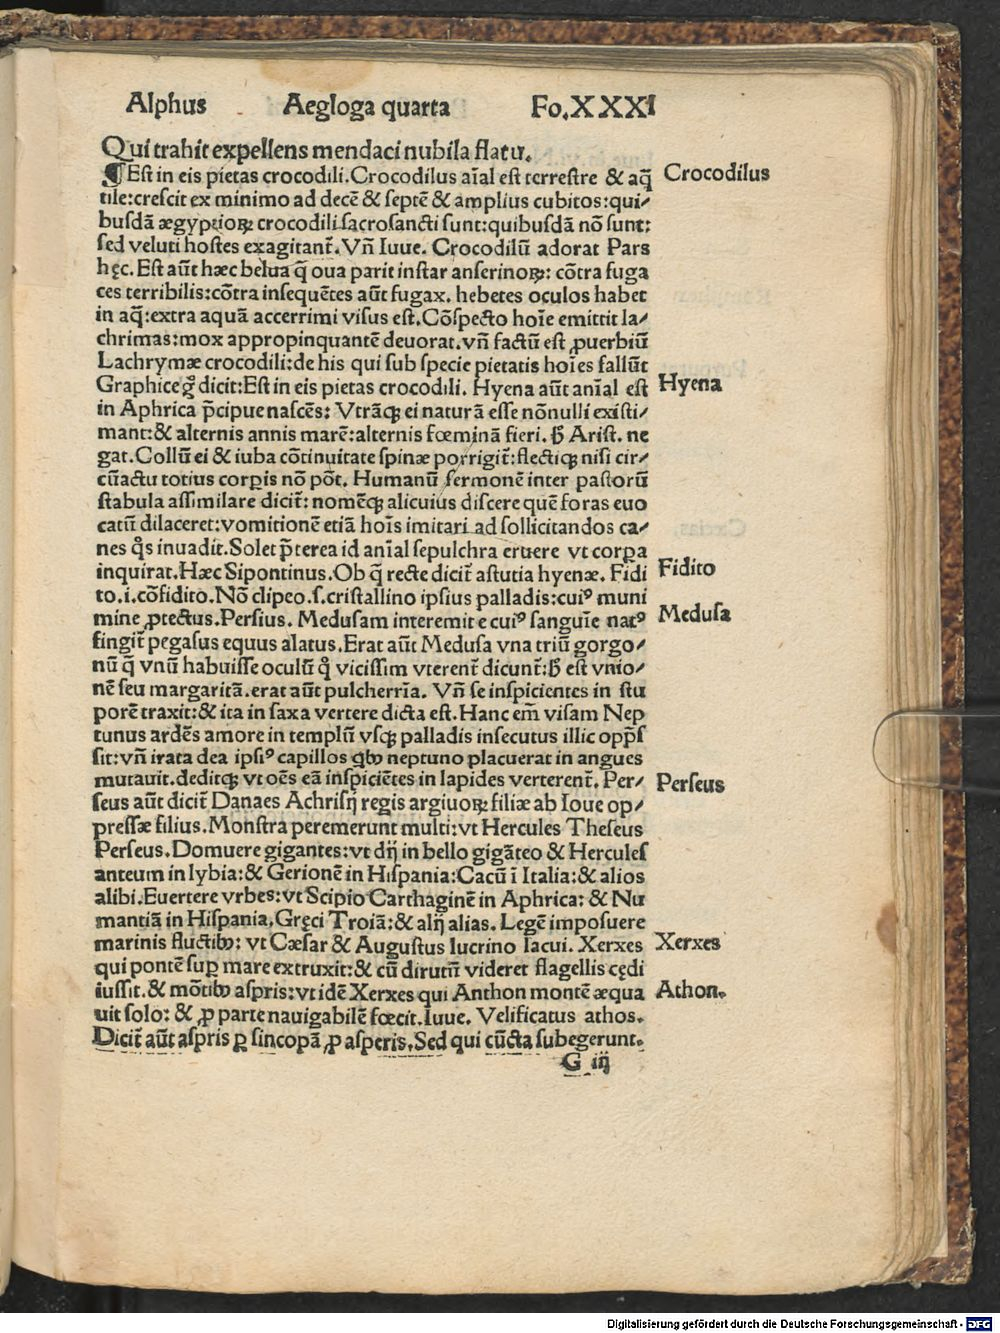 Alphus Aegloga quarta Fo.XXXI
Qui trahit expellens mendaci nubila flatu.
¶Est in eis pietas crocodili.Crocodilus aīal est terrestre & aq̄ Crocodilus
tile:crescit ex minimo ad decē & septē & amplius cubitos:qui/
busdā ægyptioꝝ crocodili sacrosancti sunt:quibusdā nō sunt:
sed veluti hostes exagitant̄. Vn̄ Iuue. Crocodilū adorat Pars
hęc. Est aūt hæc belua q̄ oua parit instar anserinoꝝ: cōtra fuga
ces terribilis:cōtra insequētes aūt fugax. hebetes oculos habet
in aq̄:extra aquā accerrimi visus est.Cōspecto hoīe emittit la/
chrimas:mox appropinquantē deuorat.vn̄ factū est ꝓuerbiū
Lachrymæ crocodili:de his qui sub specie pietatis hoīes fallūt
Graphice g̊ dicit:Est in eis pietas crocodili. Hyena aūt anīal est Hyena
in Aphrica p̄cipue nascēs: Vtrāqꝫ ei naturā esse nōnulli existi/
mant:& alternis annis marē:alternis fœminā fieri. ꝙ Arist. ne
gat.Collū ei & iuba cōtinuitate spinæ porrigit̄:flectiqꝫ nisi cir/
cūactu totius corꝑis nō pōt. Humanū sermonē inter pastorū
stabula assimilare dicit̄: nomēqꝫ alicuius discere quē foras euo
catū dilaceret:vomitionē etiā hoīs imitari ad sollicitandos ca/
nes q̊s inuadit.Solet p̄terea id anīal sepulchra eruere vt corꝑa
inquirat.Hæc Sipontinus.Ob q̄ recte dicit̄ astutia hyenæ. Fidi Fidito
to.i.cōfidito.Nō clipeo.s.cristallino ipsius palladis:cuiꝰ muni
mine ꝓtectus.Persius. Medusam interemit e cuiꝰ sanguīe natꝰ Medusa
fingit̄ pegasus equus alatus.Erat aūt Medusa vna triū gorgo/
nū q̄ vnū habuisse oculū q̊ vicissim vterent̄ dicunt̄:ꝙ est vnio/
nē seu margaritā.erat aūt pulcherrīa. Vn̄ se inspicientes in stu
porē traxit:& ita in saxa vertere dicta est.Hanc em̄ visam Nep
tunus ardēs amore in templū vsqꝫ palladis insecutus illic opp̄s
sit:vn̄ irata dea ipsiꝰ capillos qbꝰ neptuno placuerat in angues
mutauit.deditqꝫ vt oēs eā inspiciētes in lapides verterent̄. Per/ Perseus
seus aūt dicit̄ Danaes Achrisij regis argiuoꝝ filiæ ab Ioue op/
pressæ filius.Monstra peremerunt multi:vt Hercules Theseus
Perseus.Domuere gigantes:vt dij in bello gigāteo & Hercules
anteum in lybia:& Gerionē in Hispania:Cacū ī Italia:& alios
alibi.Euertere vrbes:vt Scipio Carthaginē in Aphrica: & Nu
mantiā in Hispania.Gręci Troiā:& alij alias. Legē imposuere
marinis fluctibꝰ: vt Cæsar & Augustus lucrino lacui. Xerxes Xerxes
qui pontē suꝑ mare extruxit:& cū dirutū videret flagellis cędi
iussit.& mōtibꝰ aspris:vt idē Xerxes qui Anthon montē æqua Athon.
uit solo: & ꝓ parte nauigabilē fœcit.Iuue. Velificatus athos.
Dicit̄ aūt aspris ꝑ sincopā ꝓ asperis.Sed qui cūcta subegerunt.
G iij
Digitalisierung gefördert durch die Deutsche Forschungsgemeinschaft - DFG